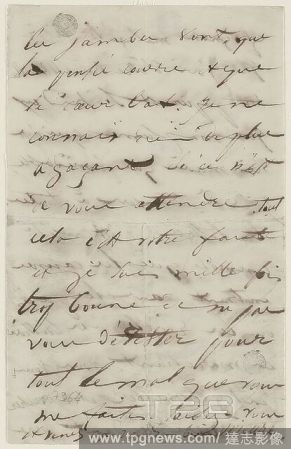 les jambes vont, que
la pensée coure et que
le cœur bat. Je ne
connais rien de plus
agaçant si ce n'est
de vous attendre. tout
cela c'est votre faute
et je suis mille fois
trop bonne de ne pas
vous détester pour
tout le mal que vous
me faites vous
TPG
www.tpgnews.com / 達志影像